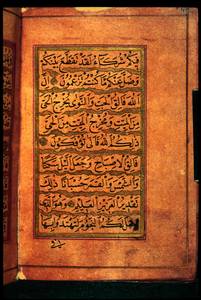 فِيكُمْ شُرَكَاءُ لَقَدْ تَقَطَّعَ بَيْنَكُمْ
وَضَلَّ عَنْكُمْ مَا كُنْتُمْ تَزْعُمُونَ اِنَّ
اللهَ فَالِقُ الْحَبِّ وَالنَّوَى يُخْرِجُ الْحَيَّ
مِنَ الْمَيِّتِ وَمُخْرِجُ الْمَيِّتِ مِنَ الْحَيِّ
ذَلِكُمُ اللهُ فَاَنَّى تُؤْفَكُونَ
فَالِقُ الْاِصْبَاحِ وَجَعَلَ الَّيْلَ سَكَنًا
وَالشَّمْسَ وَالْقَمَرَ حُسْبَانًا ذَلِكَ
تَقْدِيرُ الْعَزِيزِ الْعَلِيمِ وَهُوَ الَّذِي
جَعَلَ لَكُمُ النُّجُومَ لِتَهْتَدُوا بِهَا